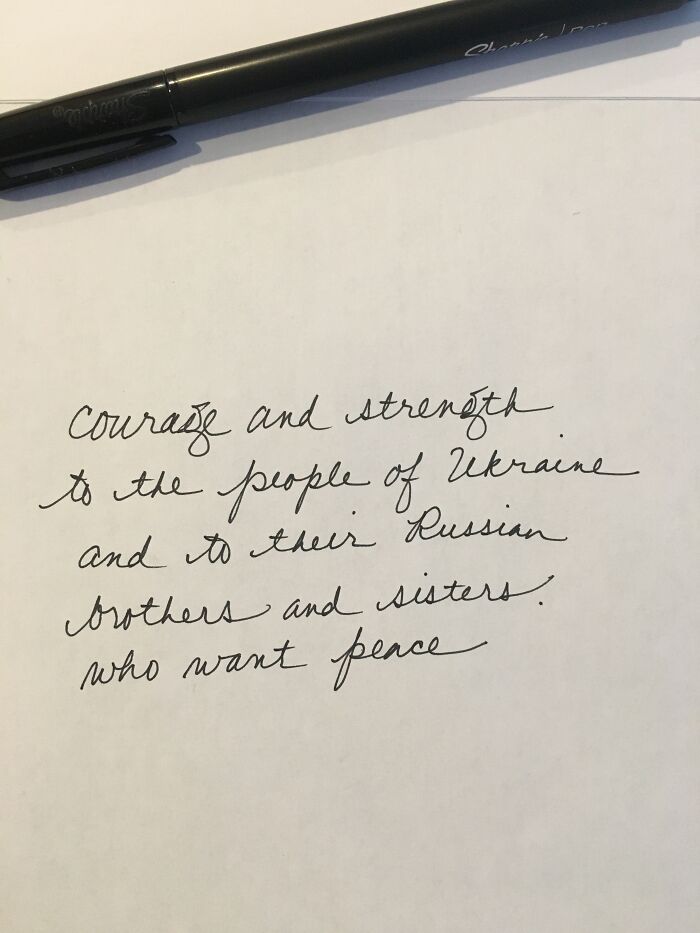 Sharpie pen
Sharpie®
courage and strength
to the people of Ukraine
and to their Russian
brothers and sisters.
who want peace